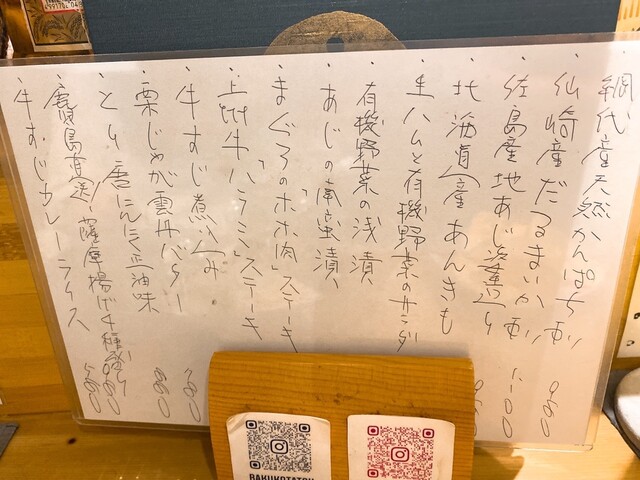 ・網代産天然かんぱち刺
・仙崎産だるまいか刺 980
・佐島産地あじ 1,100
・北海道産あんきも
・生ハムと有機野菜のサラダ
・有機野菜の浅漬
・あじの南蛮漬
・まぐろのホホ肉ステーキ
・上州牛「ハラミ」ステーキ
・牛すじ煮込み
・栗じゃが雲丹バター
・とり唐にんにく正油味 880
・鹿児島直送!薩摩揚げ4種盛り
・牛すじカレーライス
RAKUKOTATSU